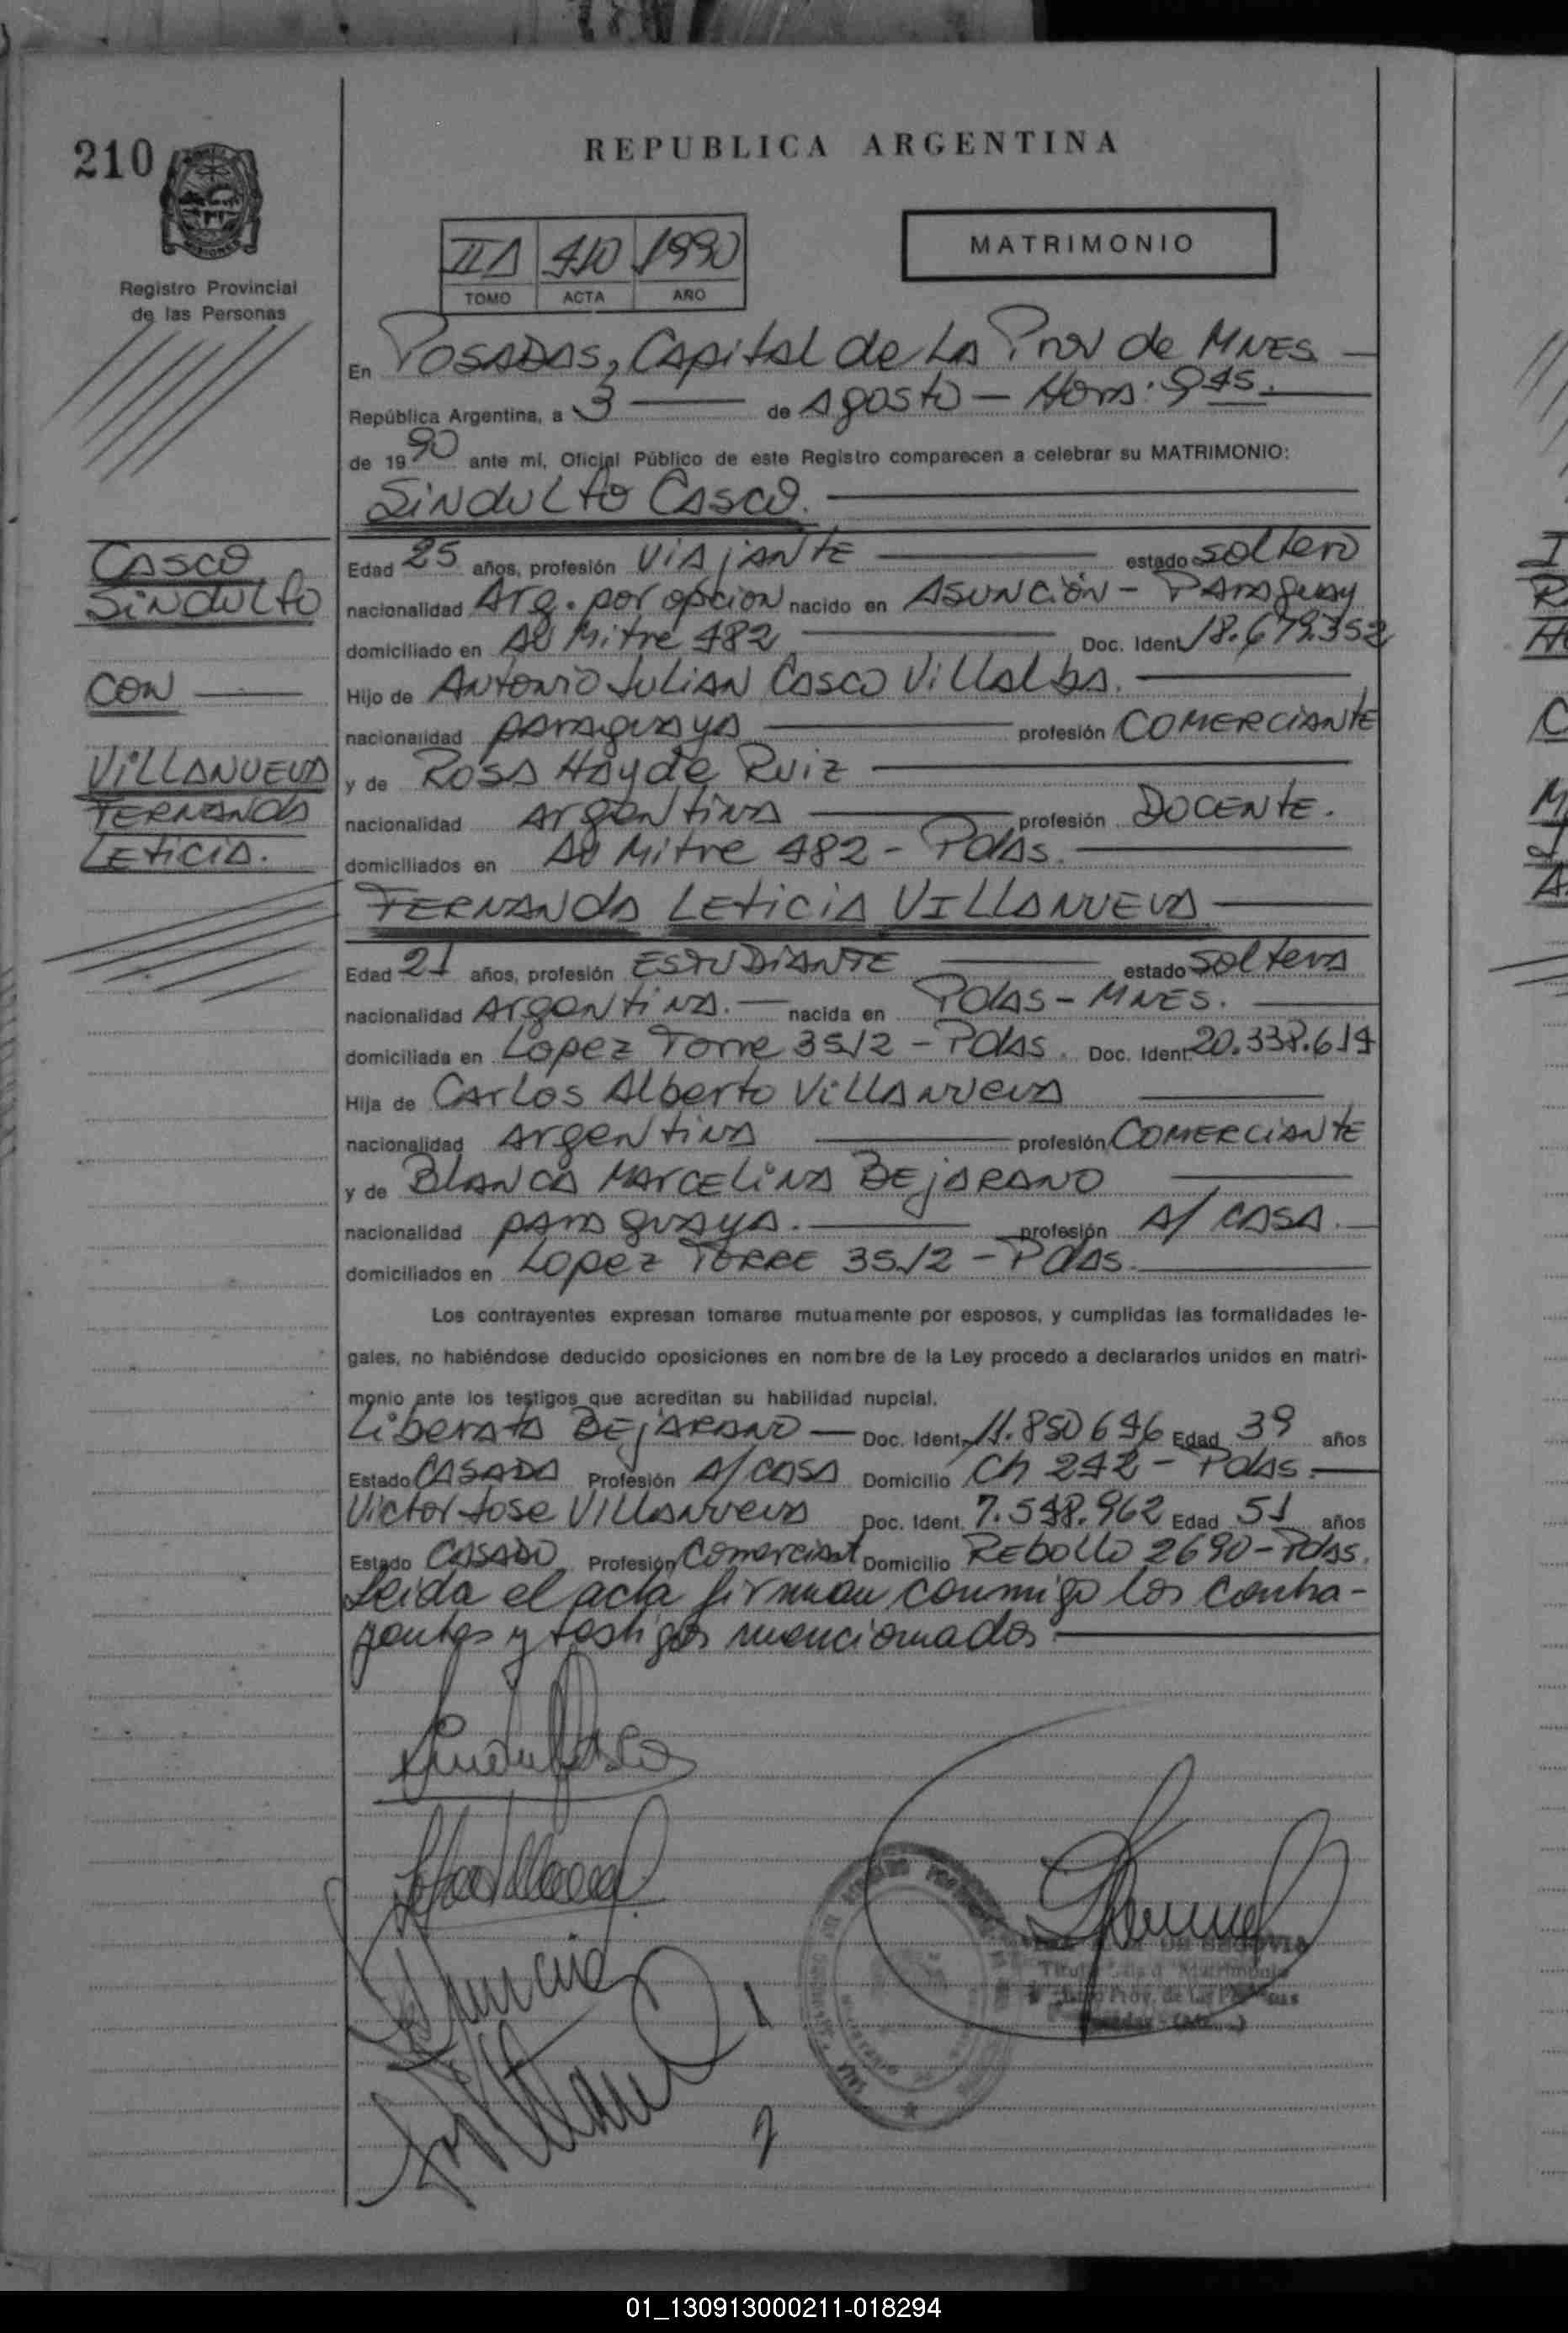 210
REPUBLICA ARGENTINA
IIA 410 1990
TOMO ACTA AÑO
MATRIMONIO
Registro Provincial
de las Personas
En POSADAS, Capital de LA Prov de MNES
República Argentina, a 3 de Agosto - Hora: 945.
de 1990 ante mí, Oficial Público de este Registro comparecen a celebrar su MATRIMONIO:
Sindulfo Casco.
CASCO
Sindulfo
CON
VILLANUEVA
FERNANDA
LETICIA.
Edad 25 años, profesión VIAJANTE estado soltero
nacionalidad Arg. por opcion nacido en ASUNCIÓN - PARAGUAY
domiciliado en Av Mitre 482 Doc. Ident 18.679.352
Hijo de Antonio Julian Casco Villalba.
nacionalidad paraguaya profesión COMERCIANTE
y de Rosa Hayde Ruiz
nacionalidad Argentina profesión DOCENTE.
domiciliados en Av Mitre 482 - Pdas.
FERNANDA LETICIA VILLANUEVA
Edad 21 años, profesión ESTUDIANTE estado soltera
nacionalidad Argentina. nacida en Pdas - MNES.
domiciliada en Lopez Torre 35/2 - Pdas. Doc. Ident. 20.338.614
Hija de Carlos Alberto Villanueva
nacionalidad Argentina profesión COMERCIANTE
y de Blanca Marcelina Bejarano
nacionalidad paraguaya. profesión A/ CASA.
domiciliados en Lopez TORRE 35/2 - Pdas.
Los contrayentes expresan tomarse mutuamente por esposos, y cumplidas las formalidades le-
gales, no habiéndose deducido oposiciones en nombre de la Ley procedo a declararlos unidos en matri-
monio ante los testigos que acreditan su habilidad nupcial.
Liberata BEJARANO Doc. Ident. 11.850696 Edad 39 años
Estado CASADA Profesión A/ CASA Domicilio Ch 242 - Pdas.
Victor Jose Villanueva Doc. Ident. 7.548.962 Edad 51 años
Estado CASADO Profesión Comerciant Domicilio REBOLLO 2690 - Pdas.
Leida el acta firman conmigo los contra-
yentes y testigos mencionados.
DE SEGOVIA
01_130913000211-018294